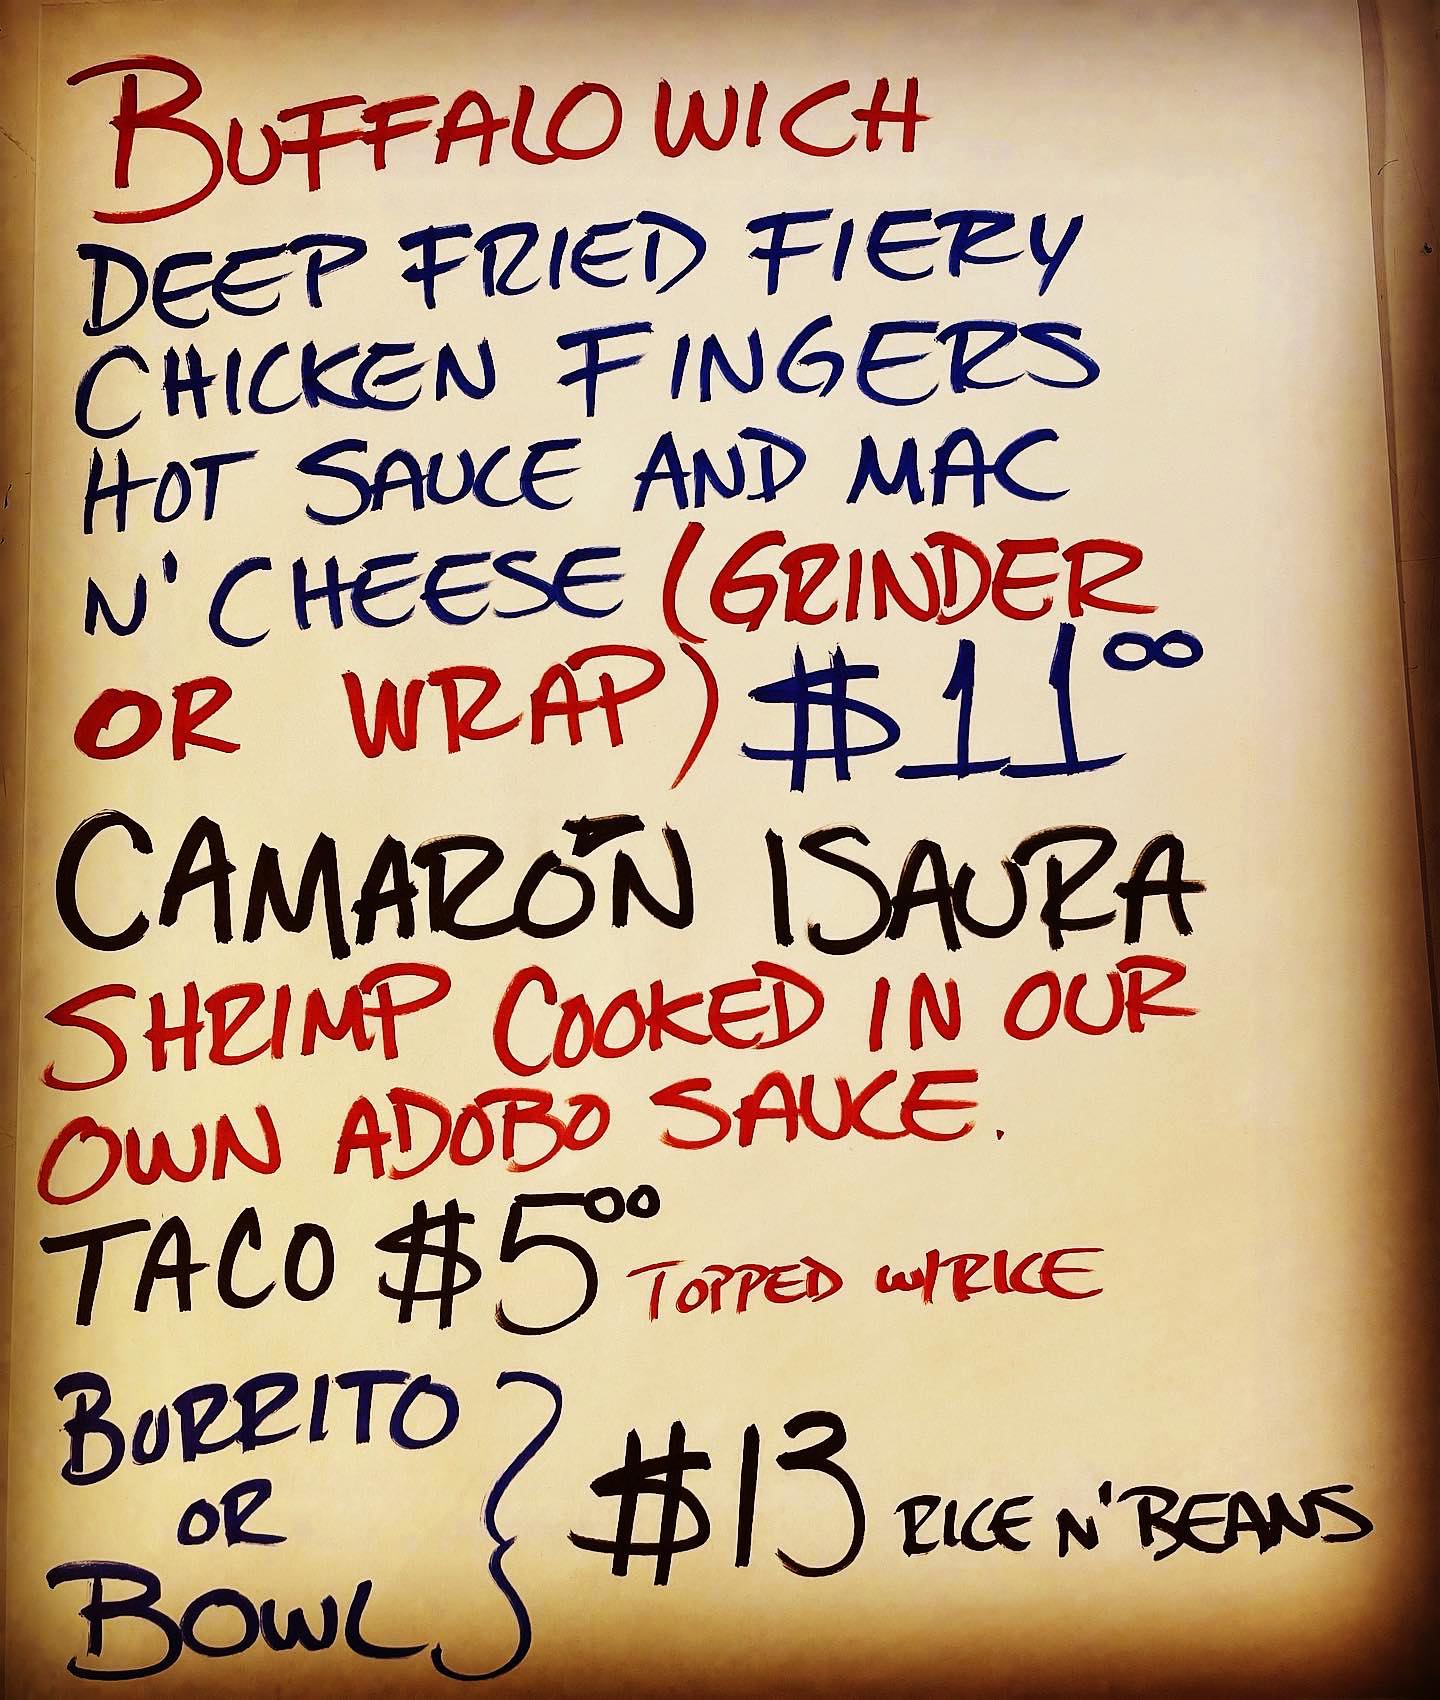 BUFFALOWICH
DEEP FRIED FIERY
CHICKEN FINGERS
HOT SAUCE AND MAC
N' CHEESE (GRINDER
OR WRAP) $11⁰⁰
CAMARÓN ISAURA
SHRIMP COOKED IN OUR
OWN ADOBO SAUCE.
TACO $5⁰⁰ TOPPED W/RICE
BURRITO
OR
BOWL } $13 RICE N' BEANS